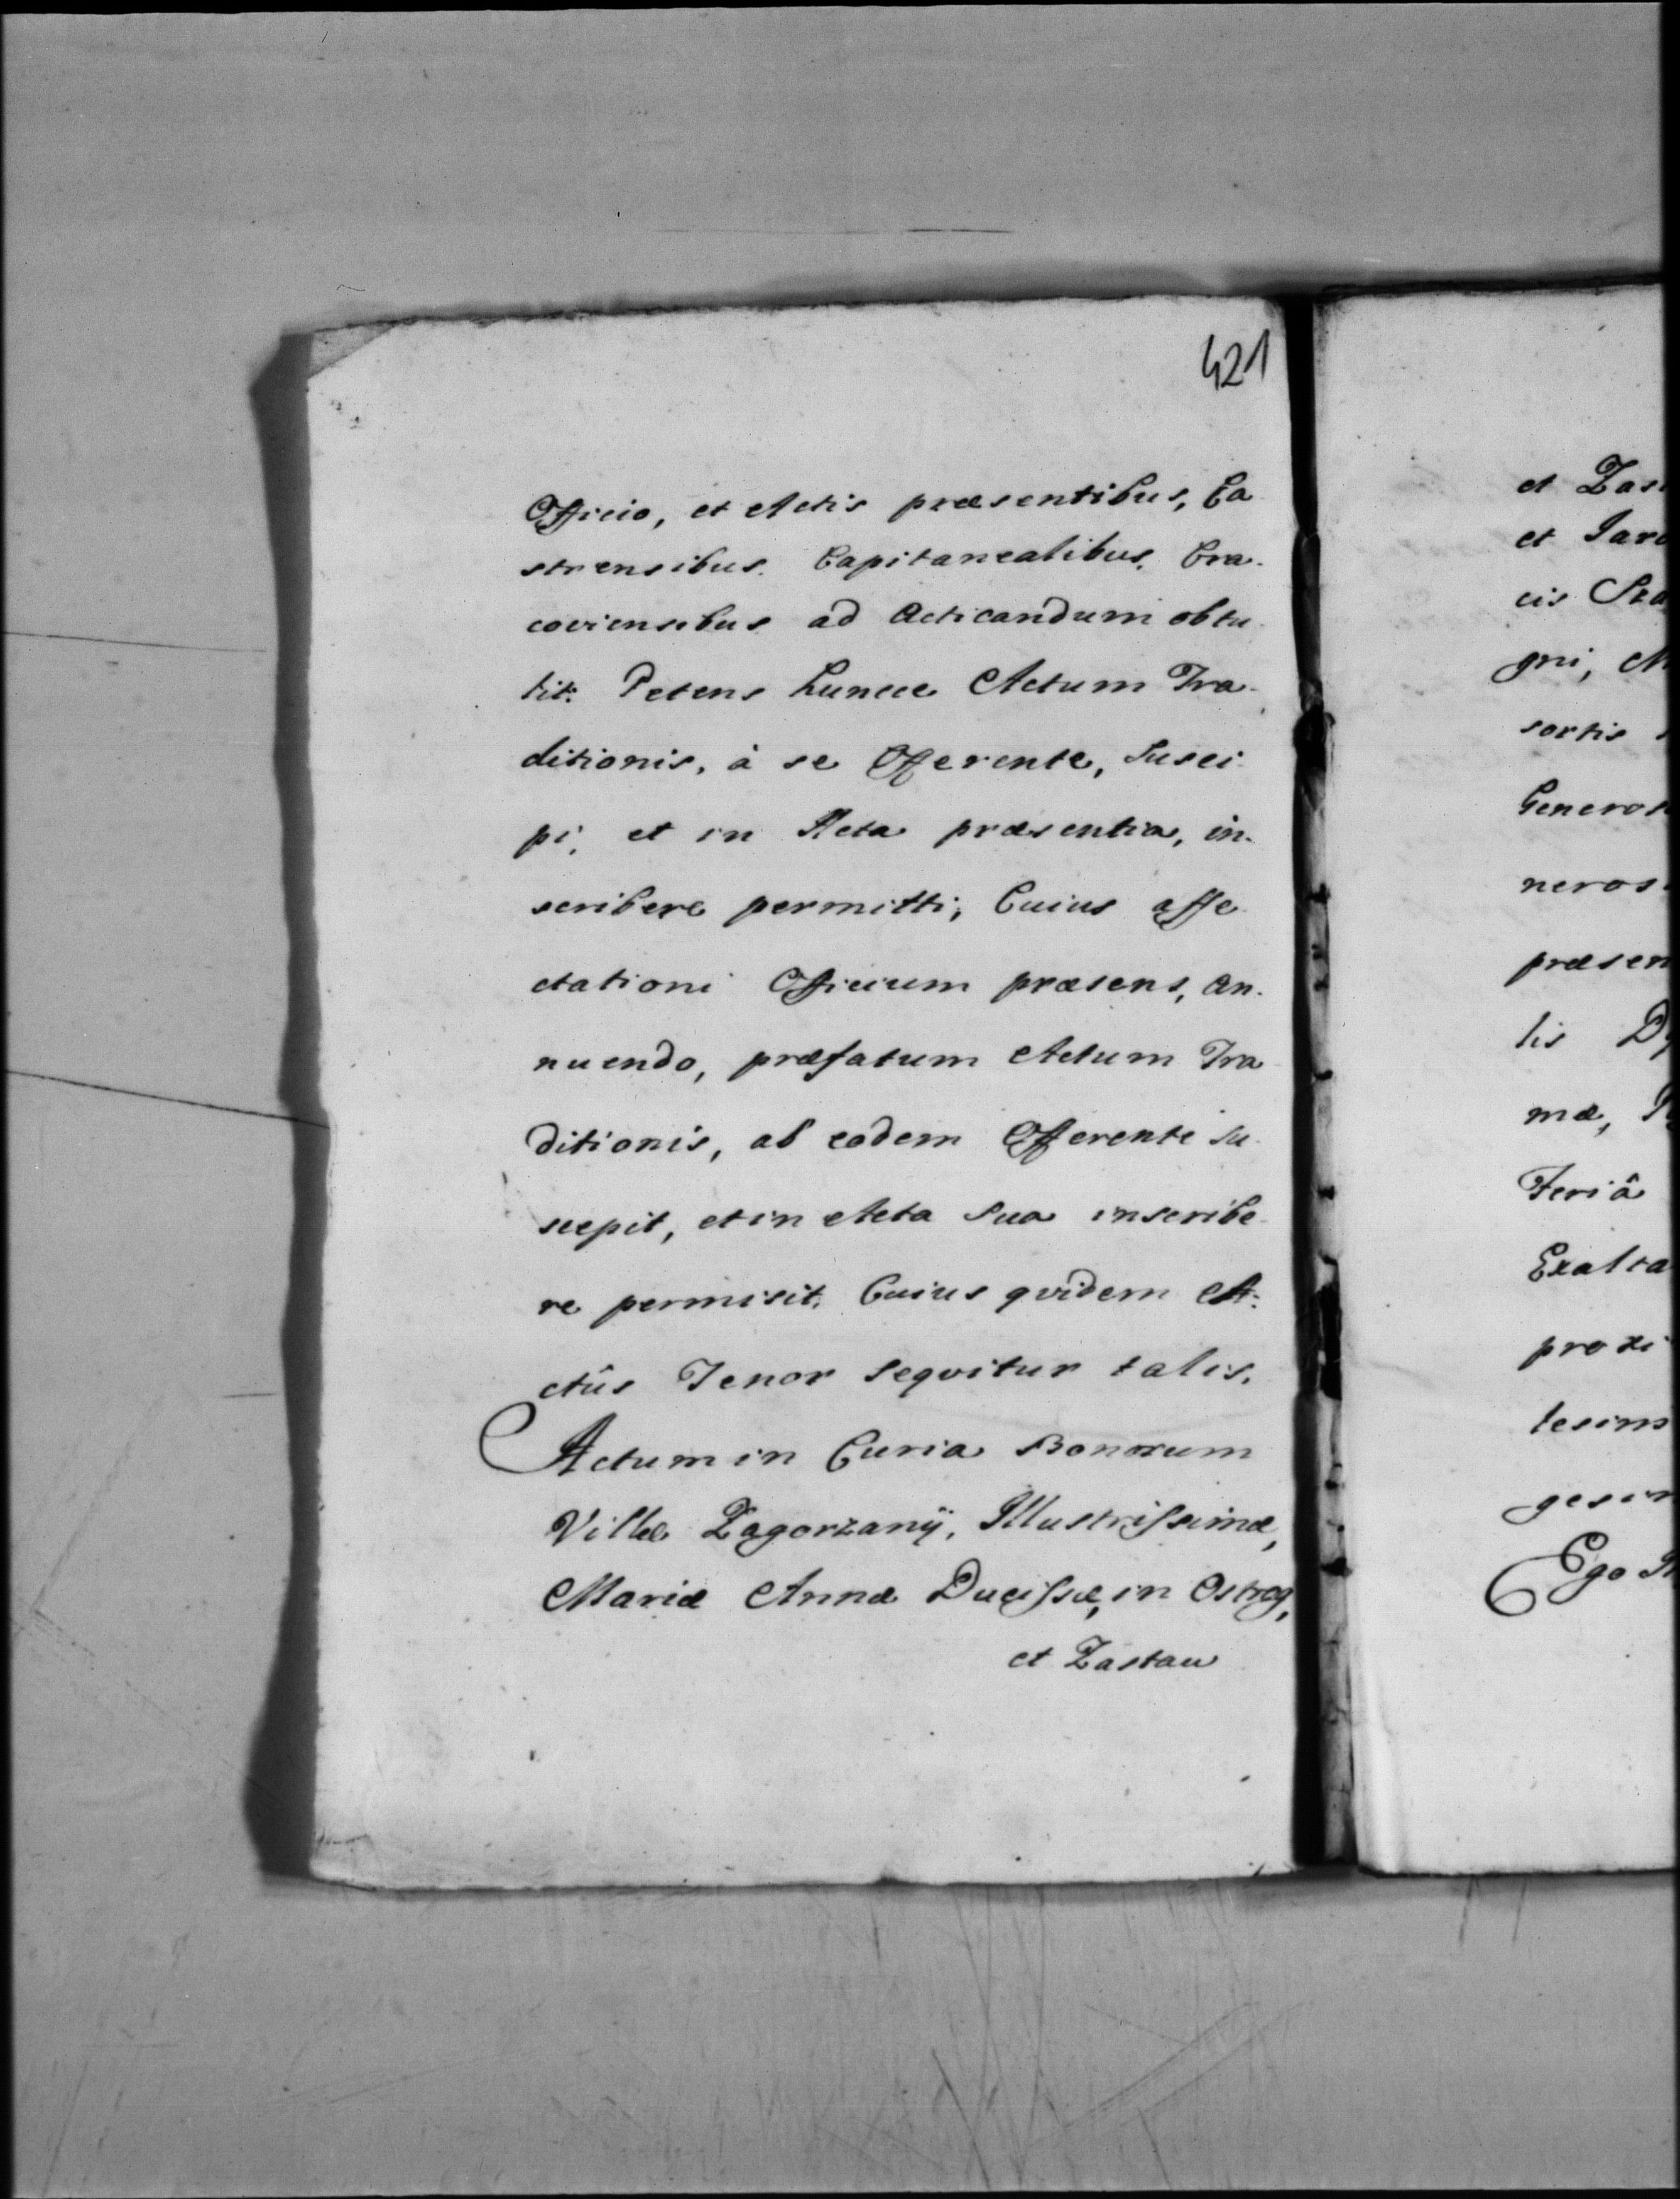 421
Officio, et Actis præsentibus, Ca
strensibus Capitanealibus Cra-
coviensibus ad Acticandum obtu
lit: Petens hunce Actum Tra-
ditionis, à se Offerente, Susci
pi, et in Acta præsentia, in-
scribere permitti; Cuius affe
ctationi Officium præsens, an-
nuendo, præfatum Actum Tra
ditionis, ab eodem Offerente su
scepit, et in Acta Sua inscribe
re permisit. Cuius qvidem A-
ctûs Tenor seqvitur talis.
Actum in Curia Bonorum
Villæ Zagorzanÿ, Illustrissimæ,
Mariæ Annæ Ducissæ, in Ostrog,
et Zastau
et Zas
et Jaro
cis
gni, M
sortis
Generos
neros
præsen
lis
mæ,
Feriâ
Exalta
proxi
lesim
gesim
Ego